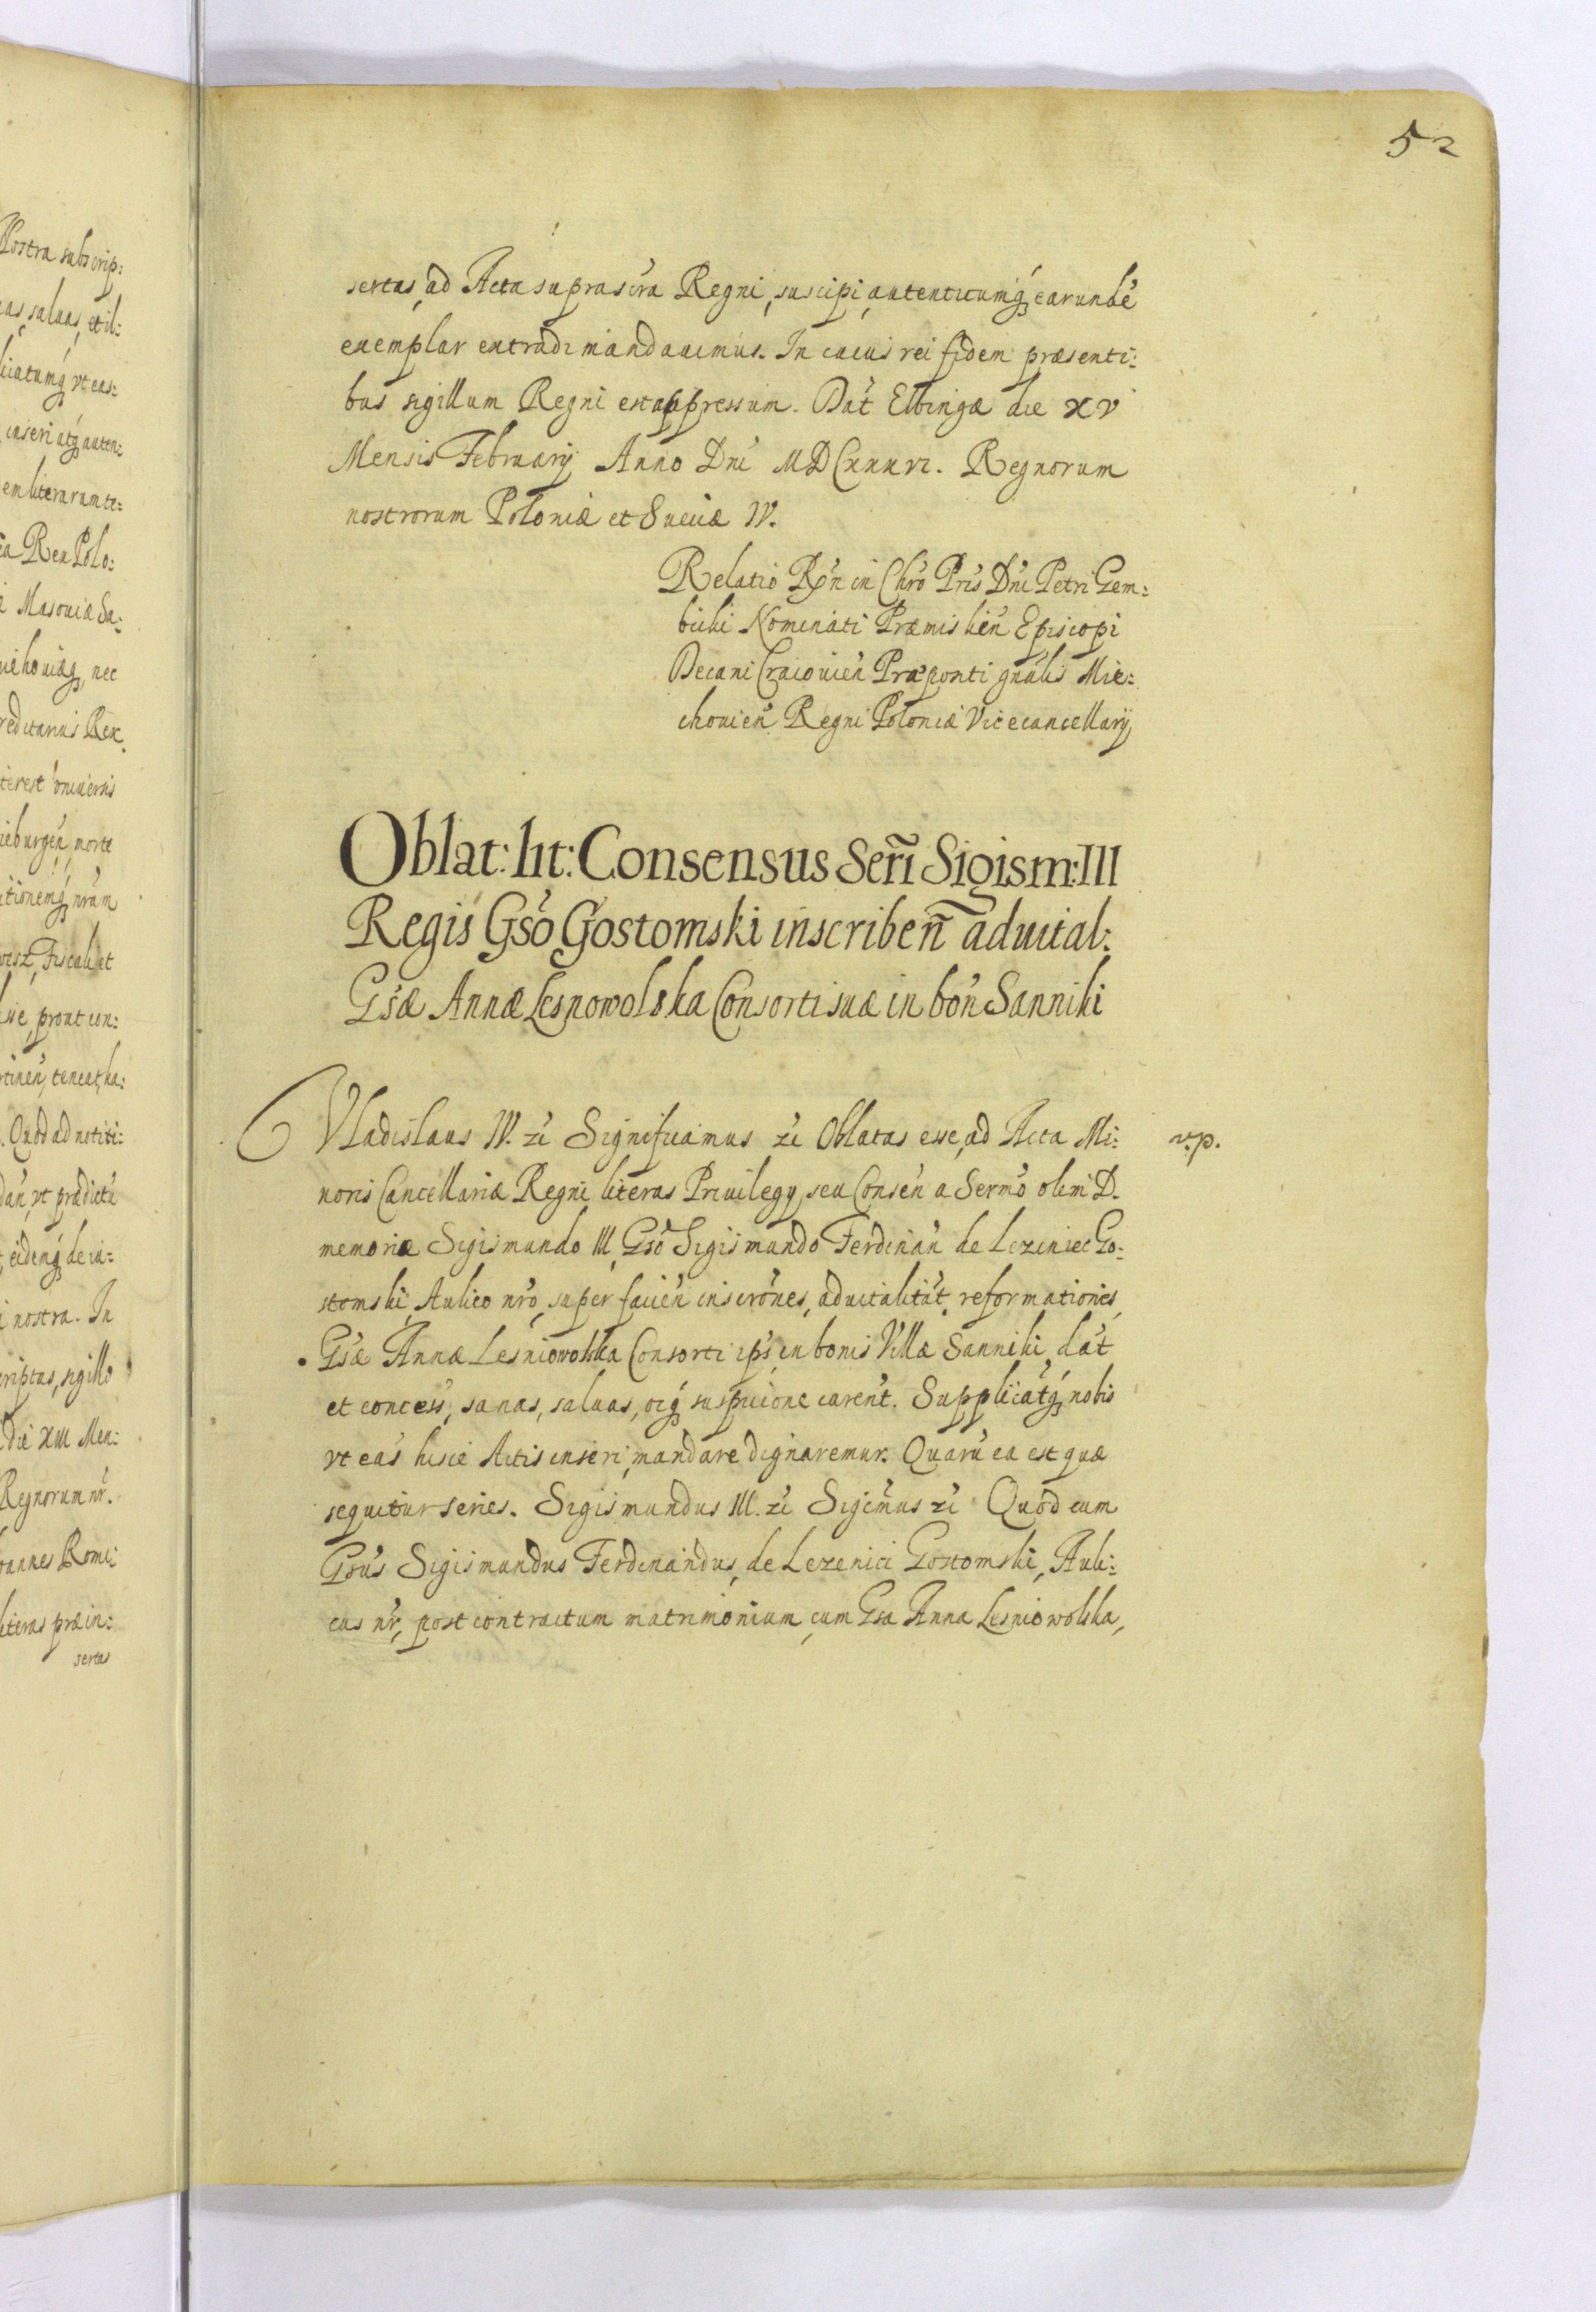 Nostra subscrip:
eas, saluas, et il:
licatumq, vt eas:
inseri atq auten:
em literarum te:
ia Rex Polo:
Masouiæ Sa:
nec
reditarius Rex
terest vniuersis
ieburgeń, norte
itionemq, nrãm
Fiscali et
prout con:
rtineń, teneat, ha:
Quod ad notiti:
dań, vt prædictũ
eidenq, de in:
i nostra. In
criptus, sigillo
die XIII Men:
Regnorum nr̃.
oannes Romc:
literas præin:
sertas
52
sertas, ad Acta suprascra Regni, suscipi, autenticumq, earundẽ
exemplar extradi mandauimus. In cuius rei fidem præsenti:
bus sigillum Regni est appressum. Dat̃ Elbingæ die XV
Mensis February Anno Dni MDCxxxvi. Regnorum
nostrorum Poloniæ et Sueciæ IV.
Relatio Rńn in Chrõ Pris Dni Petri Gem:
bicki Nominati Præmislieñ Episcopi
Decani Cracouień Præponti gnalis Mie:
chouień Regni Poloniæ Vicecancellarÿ
Oblat: lit: Consensus Serñi Sigism: III
Regis Gsõ Gostomski inscribeñ aduital:
Gsæ Annæ Lesnowolska Consorti suæ in boń Sanniki
Vladislaus IV. zć Significamus zć Oblatas esse, ad Acta Mi:
v.p.
noris Cancellariæ Regni literas Priuilegÿ, seu Conseń a Sermõ olim D.
memoriæ Sigismundo III, Gsõ Sigismundo Ferdinań de Lezeniec Go:
stomski, Aulico nrõ, super facień inscrõnes, aduitalitat̃, reformationes,
Gsæ Annæ Lesniowolska Consorti ips̃, in bonis Villæ Sanniki dat̃
et concess̃, sanas, saluas, oĩq, suspicione carent̃. Supplicat̃q, nobis
vt eas hisce Actis inseri, mandare dignaremur. Quarũ ea est quæ
sequitur series. Sigismundus III. zć Sigcmus zć Quod cum
Gsus Sigismundus Ferdinandus, de Lezenici Gostomski, Auli:
cus nr̃, post contractum matrimonium, cum Gsa Anna Lesniowolska,